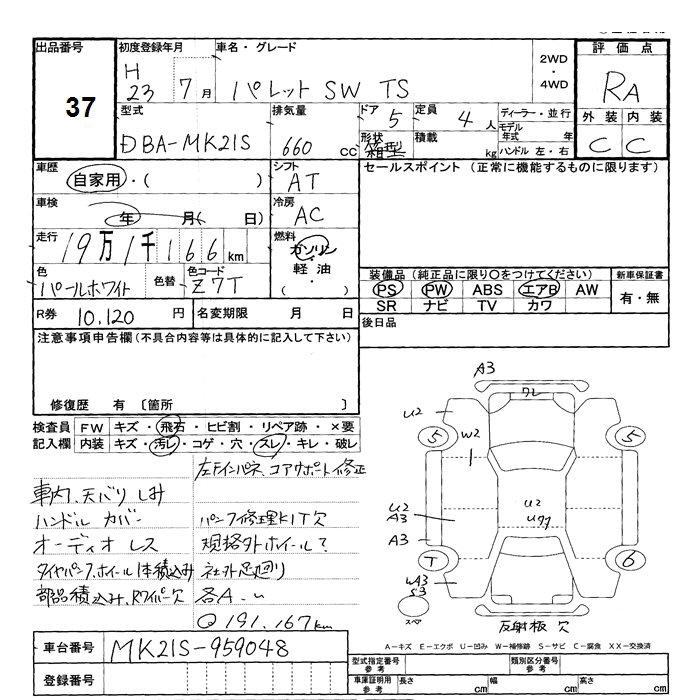 出品番号 初度登録年月 車名・グレード 2WD・4WD 評価点
37 H 23 7月 パレット SW TS RA
型式 排気量 ドア 5 定員 4人 ディーラー・並行 外装 内装
DBA-MK21S 660 CC 形状 箱型 積載 kg モデル年式 年 ハンドル 左・右 C C
車歴 自家用・( ) シフト AT セールスポイント (正常に機能するものに限ります)
車検 年 月( 日) 冷房 AC
走行 19万1千166km 燃料 ガソリン・軽油・( )
色 パールホワイト 色替 色コード Z7T
装備品 (純正品に限り○をつけてください) 新車保証書
PS PW ABS エアB AW 有・無
SR ナビ TV カワ
R券 10,120 円 名変期限 月 日 後日品
注意事項申告欄 (不具合内容等は具体的に記入して下さい)
修復歴 有 〔箇所 〕
検査員記入欄 FW キズ・飛石・ヒビ割・リペア跡・×要
内装 キズ・汚レ・コゲ・穴・スレ・キレ・破レ
左Fインパネ、コアサポート修正
車内、天バリ しみ
ハンドル カバー パンク修理KIT欠
オーディオ レス 規格外ホイール?
タイヤパンク、ホイール1本積込み 社外足廻り
部品積込み、Rワイパー欠 各A
191,167km
A3
ワレ
U2
5 W2 5
U2
A3 U2
A3
T 6
WA3
S3
スペア
反射板 欠
A-キズ E-エクボ U-凹み W-補修跡 S-サビ C-腐食 XX-交換済
車台番号 MK21S-959048
型式指定番号 参考 類別区分番号 参考
登録番号
車庫証明用 参考 長さ cm 幅 cm 高さ cm